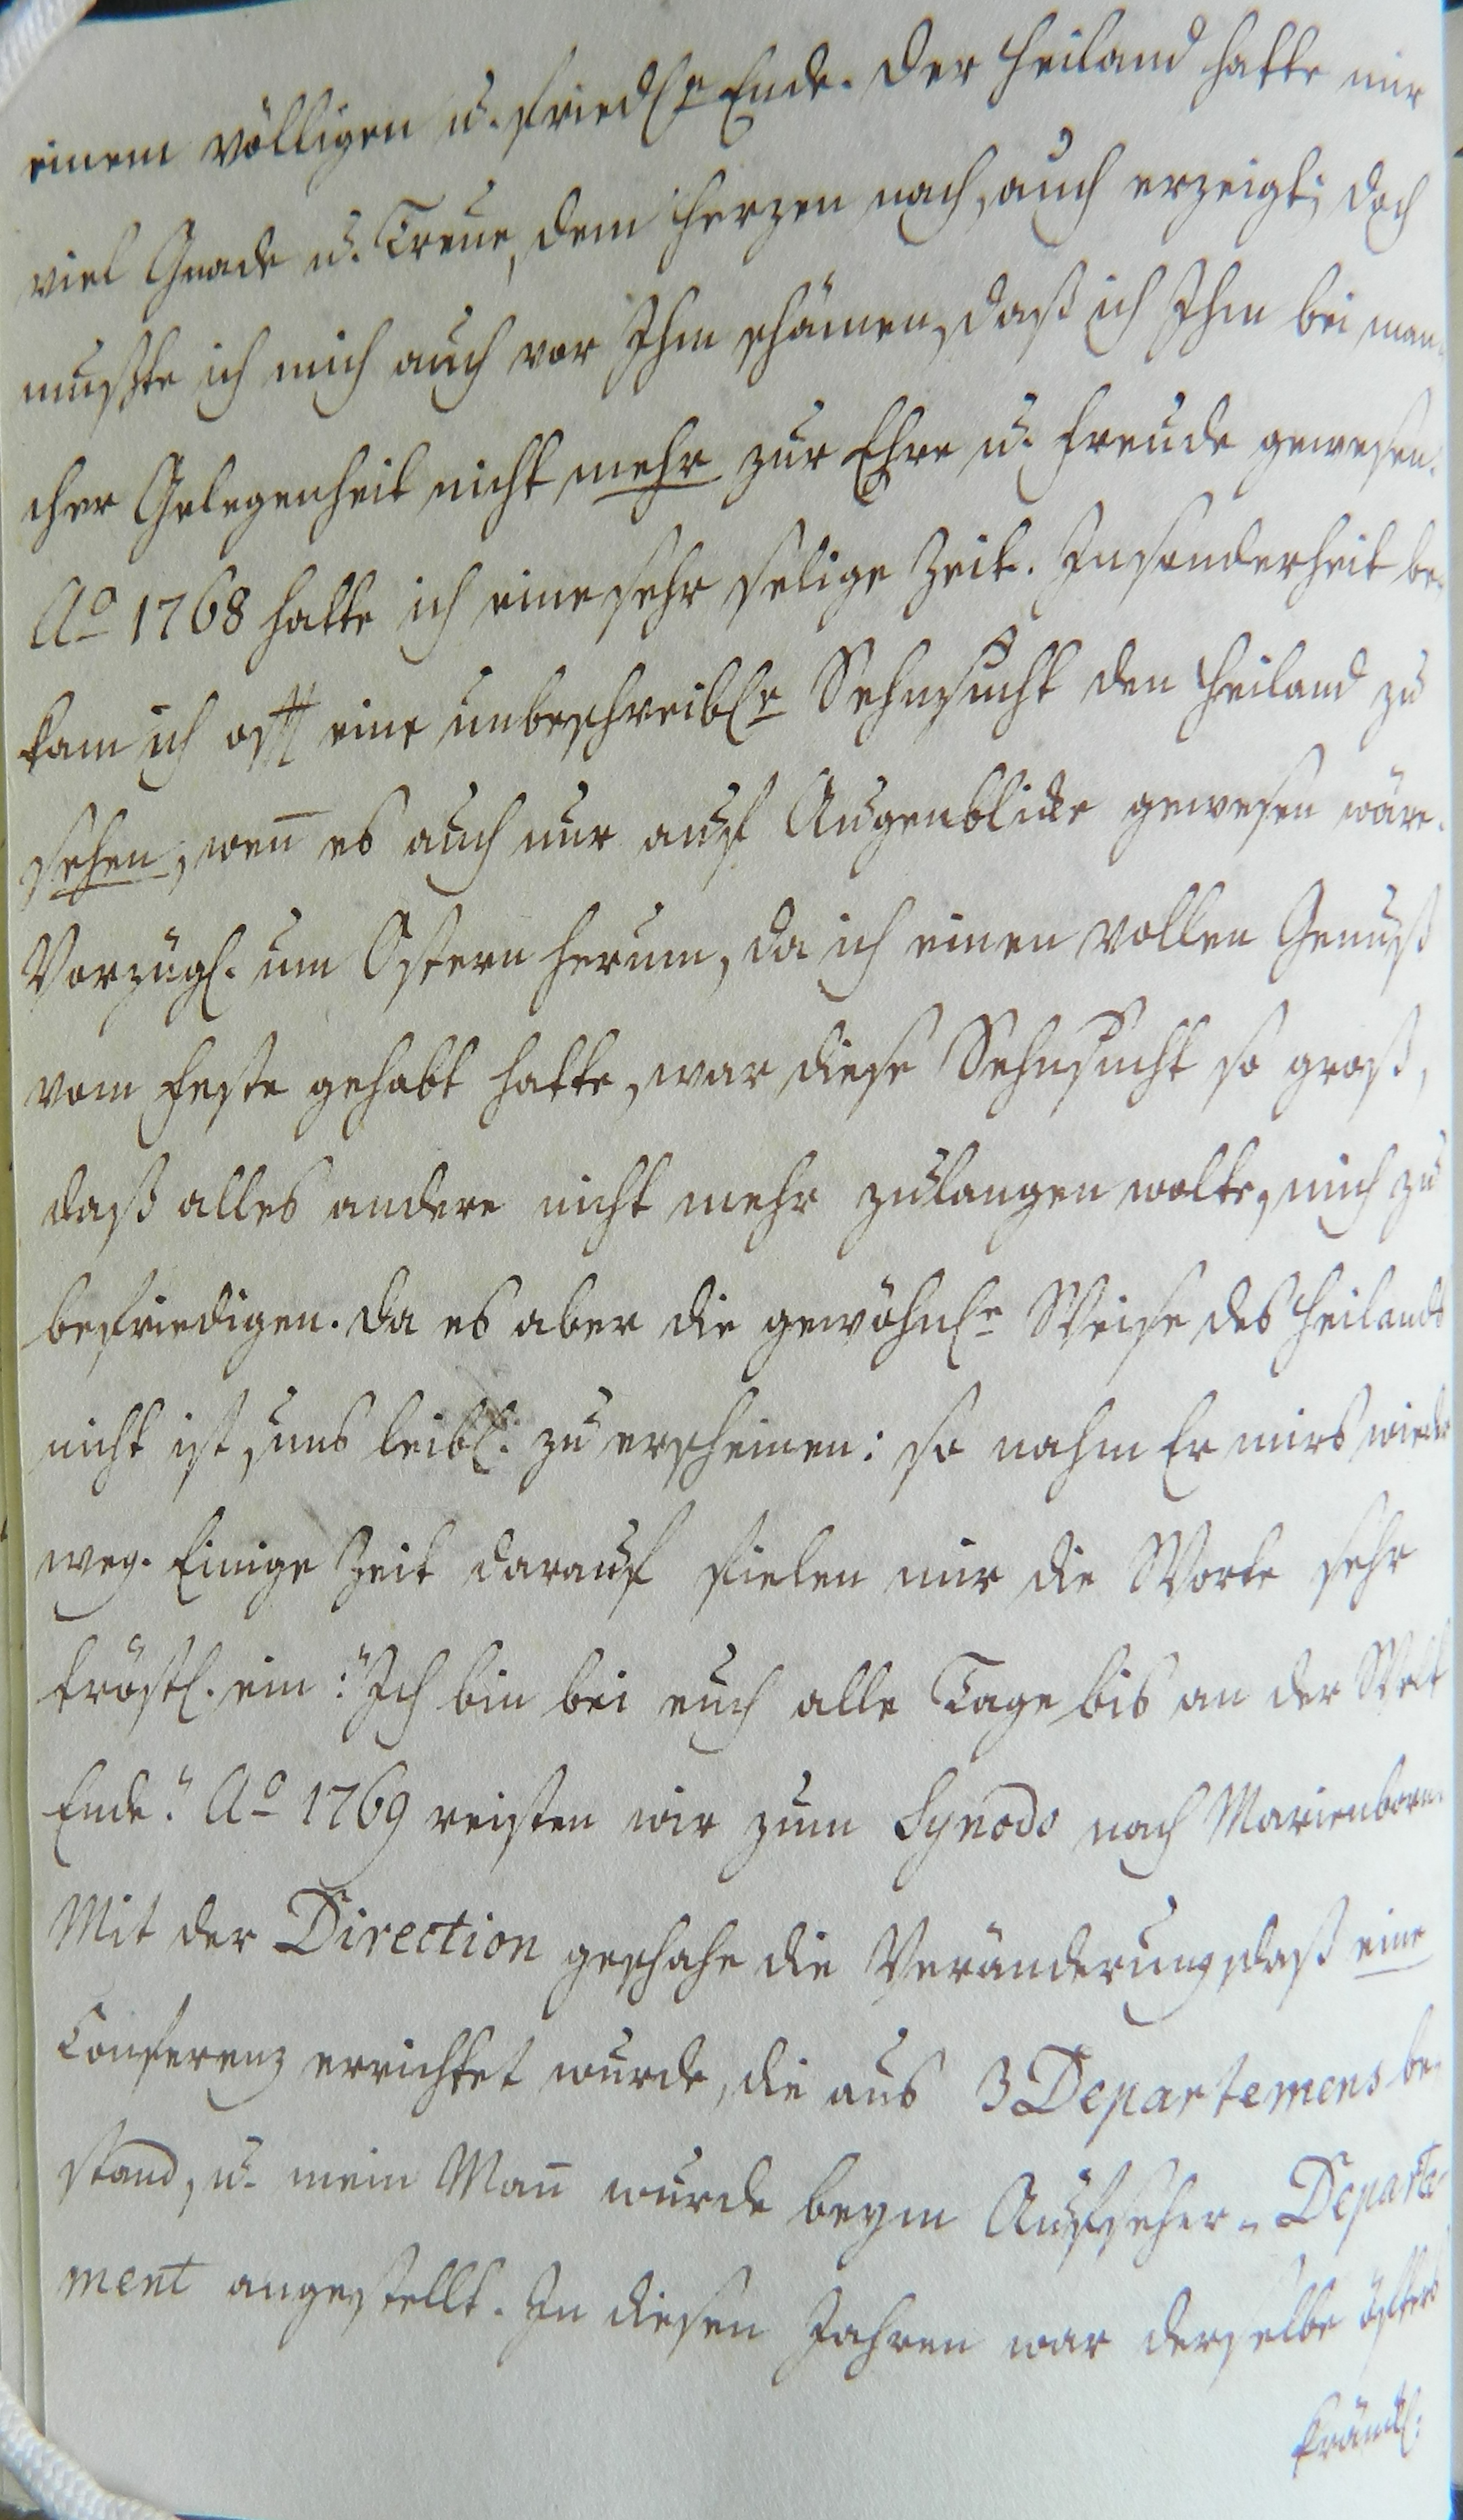 einem völligen u. friedl.n Ende. Der Heiland hatte mir
viel Gnade u. Treue, dem Herzen nach, auch erzeigt; doch
mußte ich mich auch vor Ihm schämen, daß ich Ihm bei man-
cher Gelegenheit nicht mehr zur Ehre u. Freude gewesen.
Ao 1768 hatte ich eine sehr selige Zeit. Insonderheit be-
kam ich oft eine unbeschreibl.e Sehnsucht den Heiland zu
sehen, wen̄ es auch nur auf Augenblicke gewesen wäre.
Vorzügl. um Ostern herum, da ich einen vollen Genuß
vom Feste gehabt hatte, war diese Sehnsucht so groß,
daß alles andere nicht mehr zulangen wolte, mich zu
befriedigen. Da es aber die gewöhnl.e Weise des Heilands
nicht ist, uns leibl. zu erscheinen: so nahm Er mirs wieder
weg. Einige Zeit darauf fielen mir die Worte sehr
tröstl. ein: "Ich bin bei euch alle Tage bis an der Welt
Ende." Ao 1769 reisten wir zum Synodo nach Marienborn.
Mit der Direction geschahe die Veränderung, daß eine
Conferenz errichtet wurde, die aus 3 Departemens be-
stand, u. mein Man̄ wurde beym Aufseher-Departe-
ment angestellt. In diesen Jahren war derselbe öfters
kränkl.